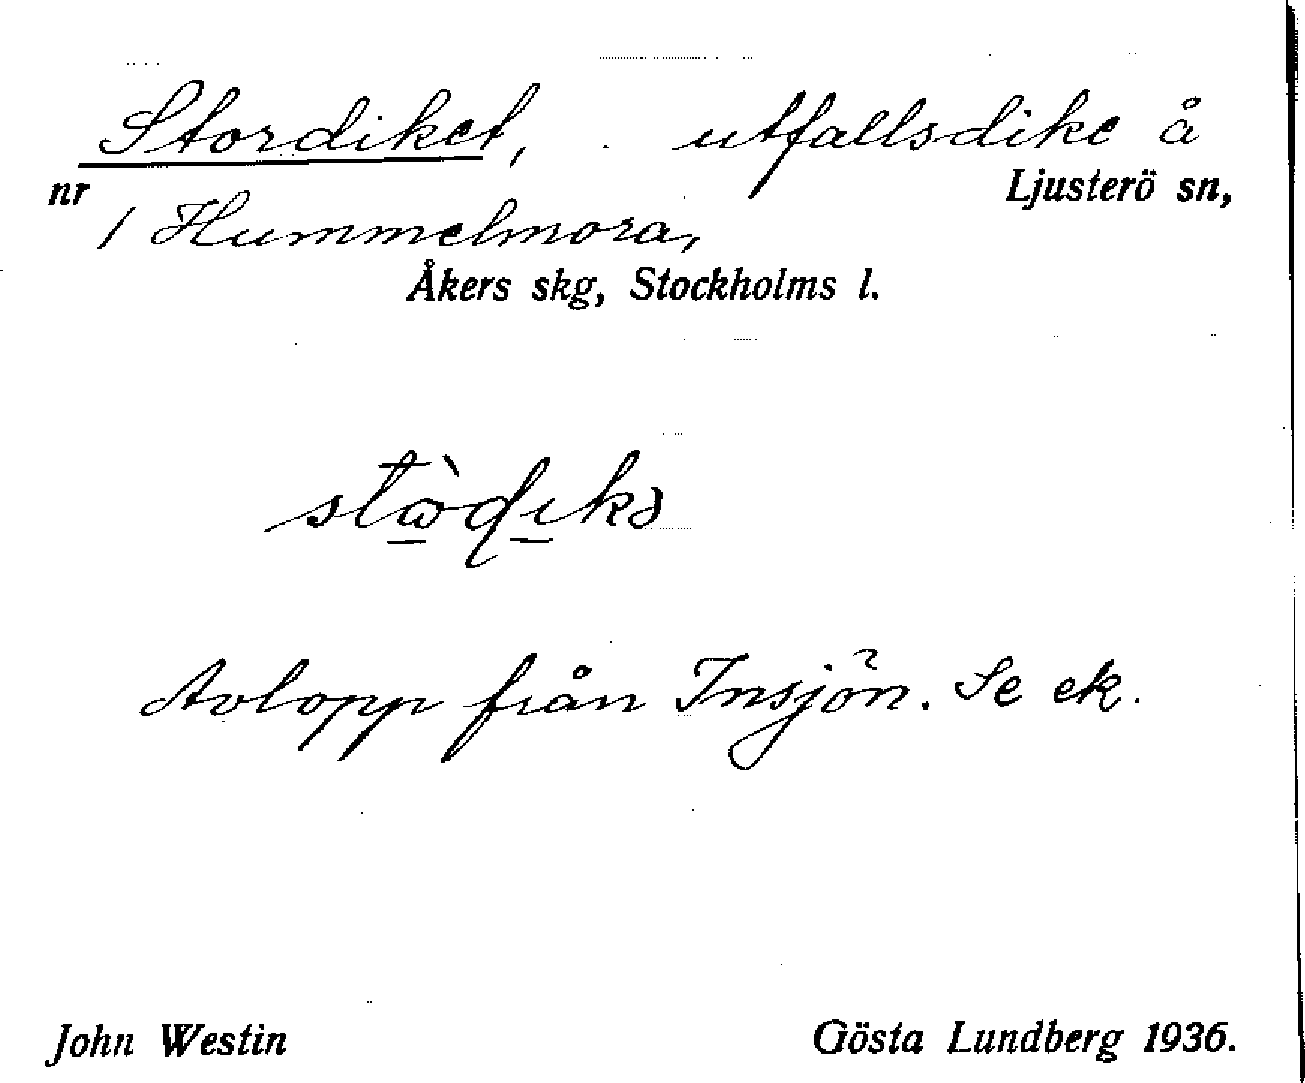 Stordiket, utfallsdike å
nr Ljusterö sn,
1 Hummelmora,
Åkers skg, Stockholms l.
Avlopp från Insjön. Se ek.
John Westin Gösta Lundberg 1936.